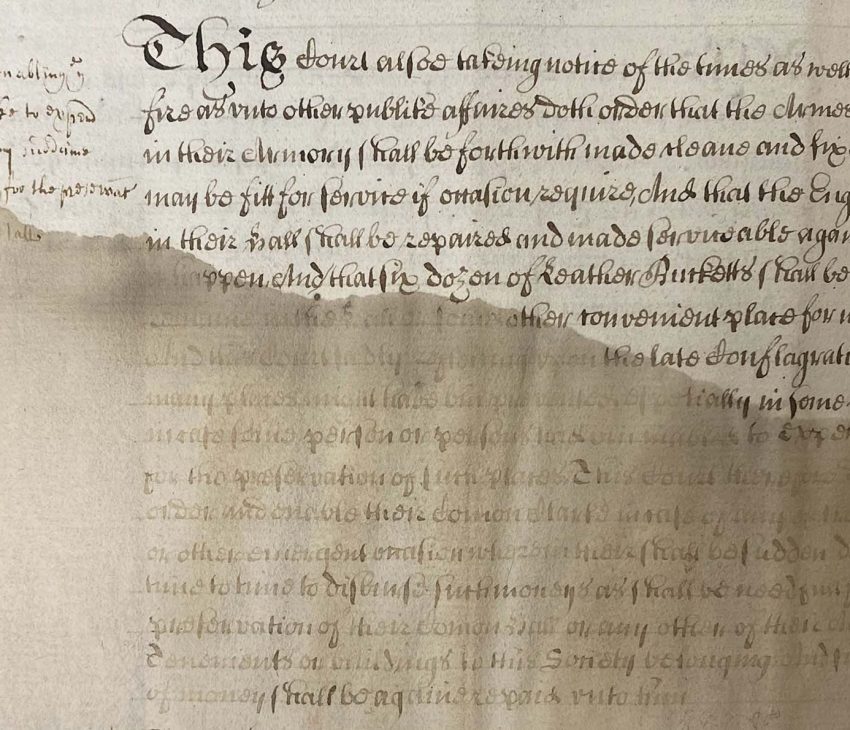 This Court alsoe takeing notice of the times as well
fire as vnto other publike affaires doth order that the Armes
in their Armory shall be forthwith made cleane and fix
may be fitt for service if occasion require, And that the Eng
in their Hall shall be repaired and made serviceable again
happen, And that six dozen of Leather Bucketts shall be
other convenient place for
And this Court sadly upon the late Conflagrati
many places might have bin in some
in case some person or persons had bin to Expe
for the preservation of such places This Court therefore
order and enable their Comon Clarke in case of any
or other emergent occasion wherein there shall be sudden
time to time to disburse such moneys as shall be needfull
preservation of their Comon Hall or any other of their
Tenements or buildings to this Society belonging And
of money shall be againe repaid vnto him
enabling ye
to expend
for the preservat
Hall